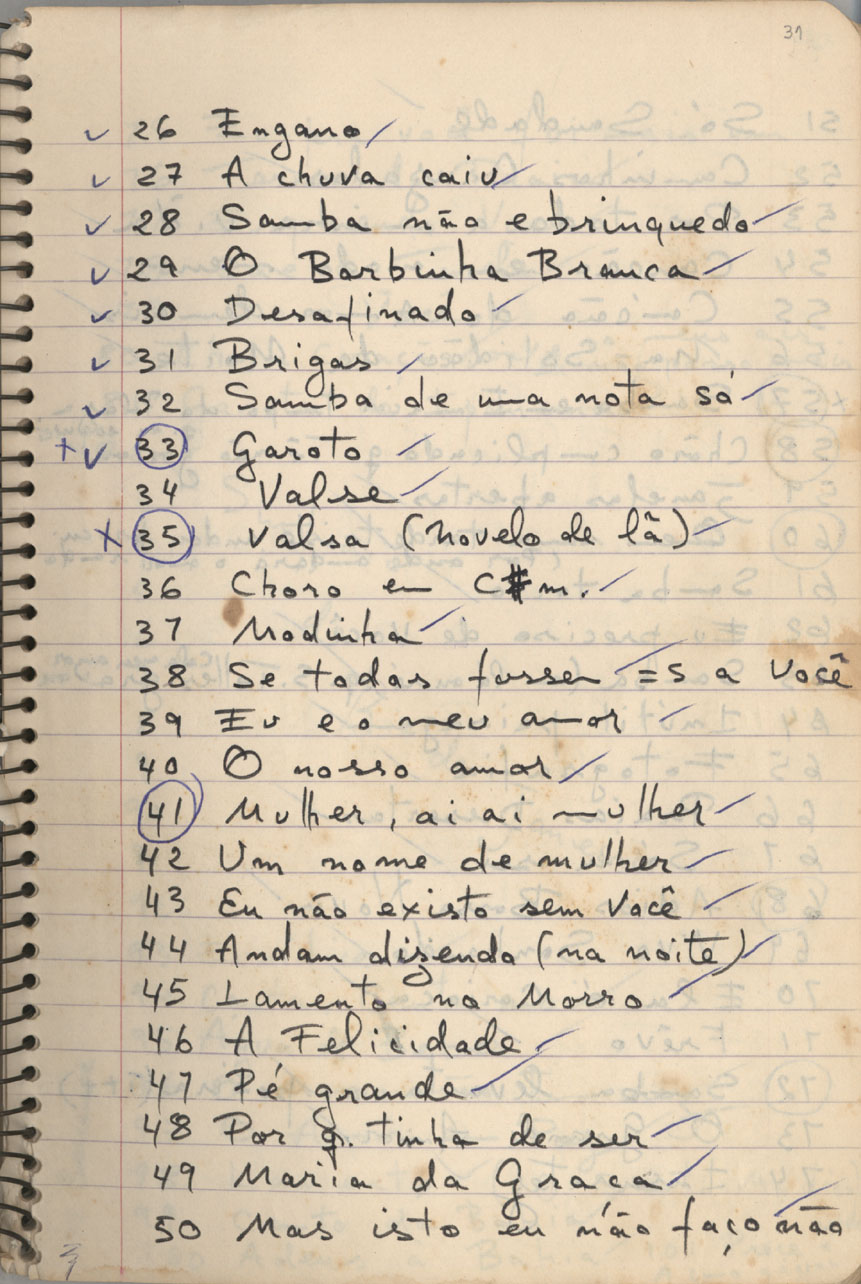 31
✓ 26 Engano /
✓ 27 A chuva caiu /
✓ 28 Samba não e brinquedo /
✓ 29 O Barbinha Branca /
✓ 30 Desafinado /
✓ 31 Brigas /
✓ 32 Samba de uma nota só /
+ ✓ 33 Garoto /
34 Valse /
x 35 Valsa (Novelo de lã) /
36 Choro em C#m. /
37 Modinha /
38 Se todas fossem = s a Você /
39 Eu e o meu amor /
40 O nosso amor /
41 Mulher, ai ai mulher /
42 Um nome de mulher /
43 Eu não existo sem Você /
44 Andam dizendo (na noite) /
45 Lamento no Morro /
46 A Felicidade /
47 Pé grande /
48 Por q. tinha de ser /
49 Maria da Graça /
50 Mas isto eu não faço não /